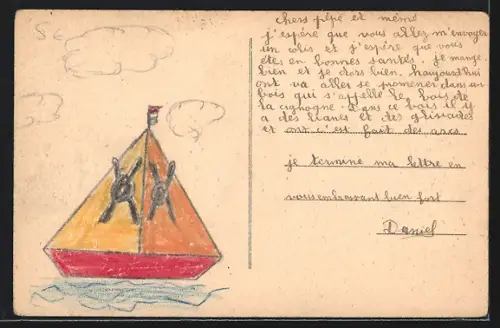 8 €
chers pépé et mémé
j'espère que vous allez m'envoyer
un colis et j'espère que vous
êtes en bonnes santés. je mange
bien et je dors bien. haujourd'hui
ont va aller se promener dans un
bois qui s'appelle le bois de
la cignogne. Dans ce bois il y
a des lianes et des glissades
et ont c'est fait des arcs
je termine ma lettre en
vous embrassant bien fort
Daniel